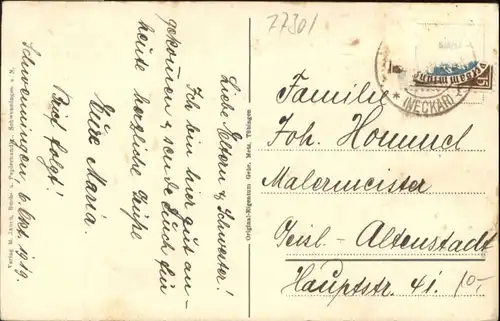 77301
Schwenningen, 6. Okt. 1919.
Liebe Eltern & Schwester!
Ich bin hier gut an-
gekommen & sende Euch ein
heute herzliche Grüße
Eure Maria.
Brief folgt!
Verlag M. Jauch, Buch- u. Papierhandlg., Schwenningen a. N.
Original-Eigentum Gebr. Metz, Tübingen
(NECKAR)
Familie
Joh. Hommel
Malermeister
Geisl.-Altenstadt
Hauptstr. 41.
10,-